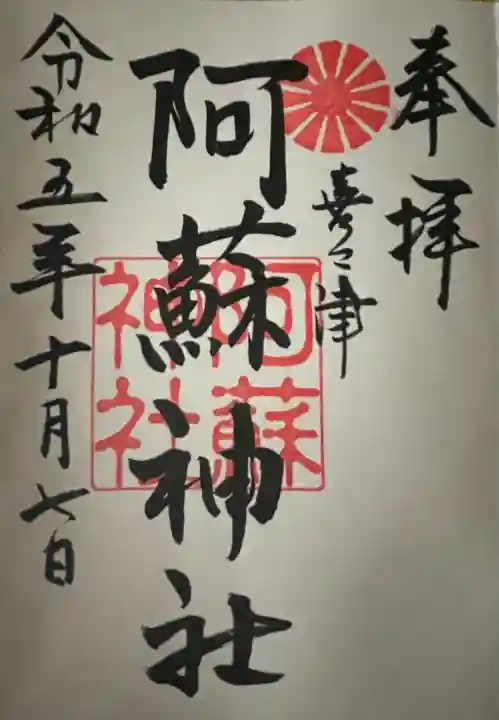 奉拝
喜々津
阿蘇神社
阿蘇
神社
令和五年十月七日